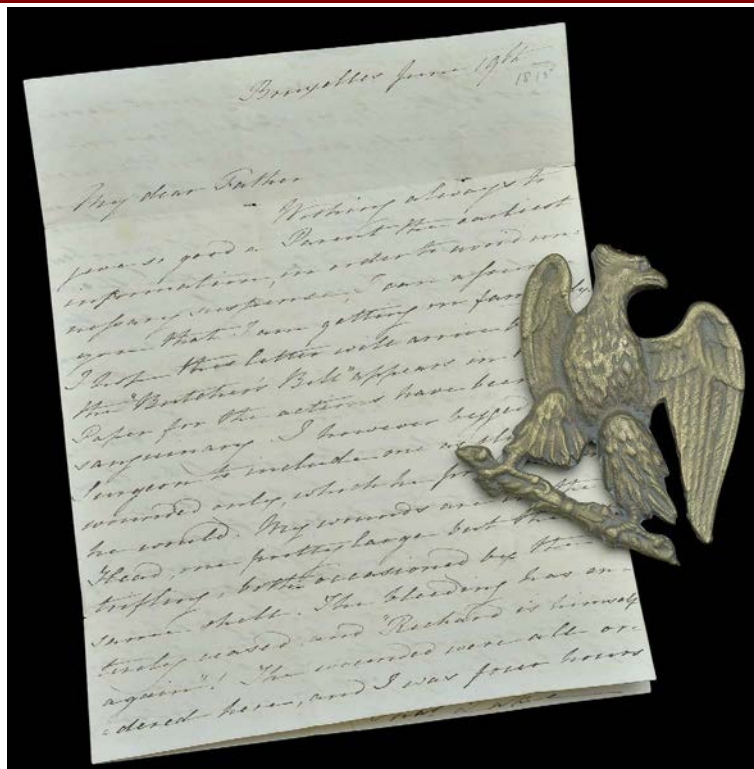 Bruxelles June 19th
1815
My dear Father
Wishing always to
give so good a Parent the earliest
information, in order to avoid un-
nessary suspense, I can assure
you that I am getting on famously
I hope this letter will arrive
the "Butcher's Bill" appears in
Paper for the actions have been
sanguinary. I however begged
Surgeon to include me as
wounded only, which he
he would. My wounds are in the
Head, one pretty large but the
trifling, both occasioned by the
same shell. The bleeding has en-
tirely ceased and "Richard is himself
again"! The wounded were all or-
dered here, and I was four hours